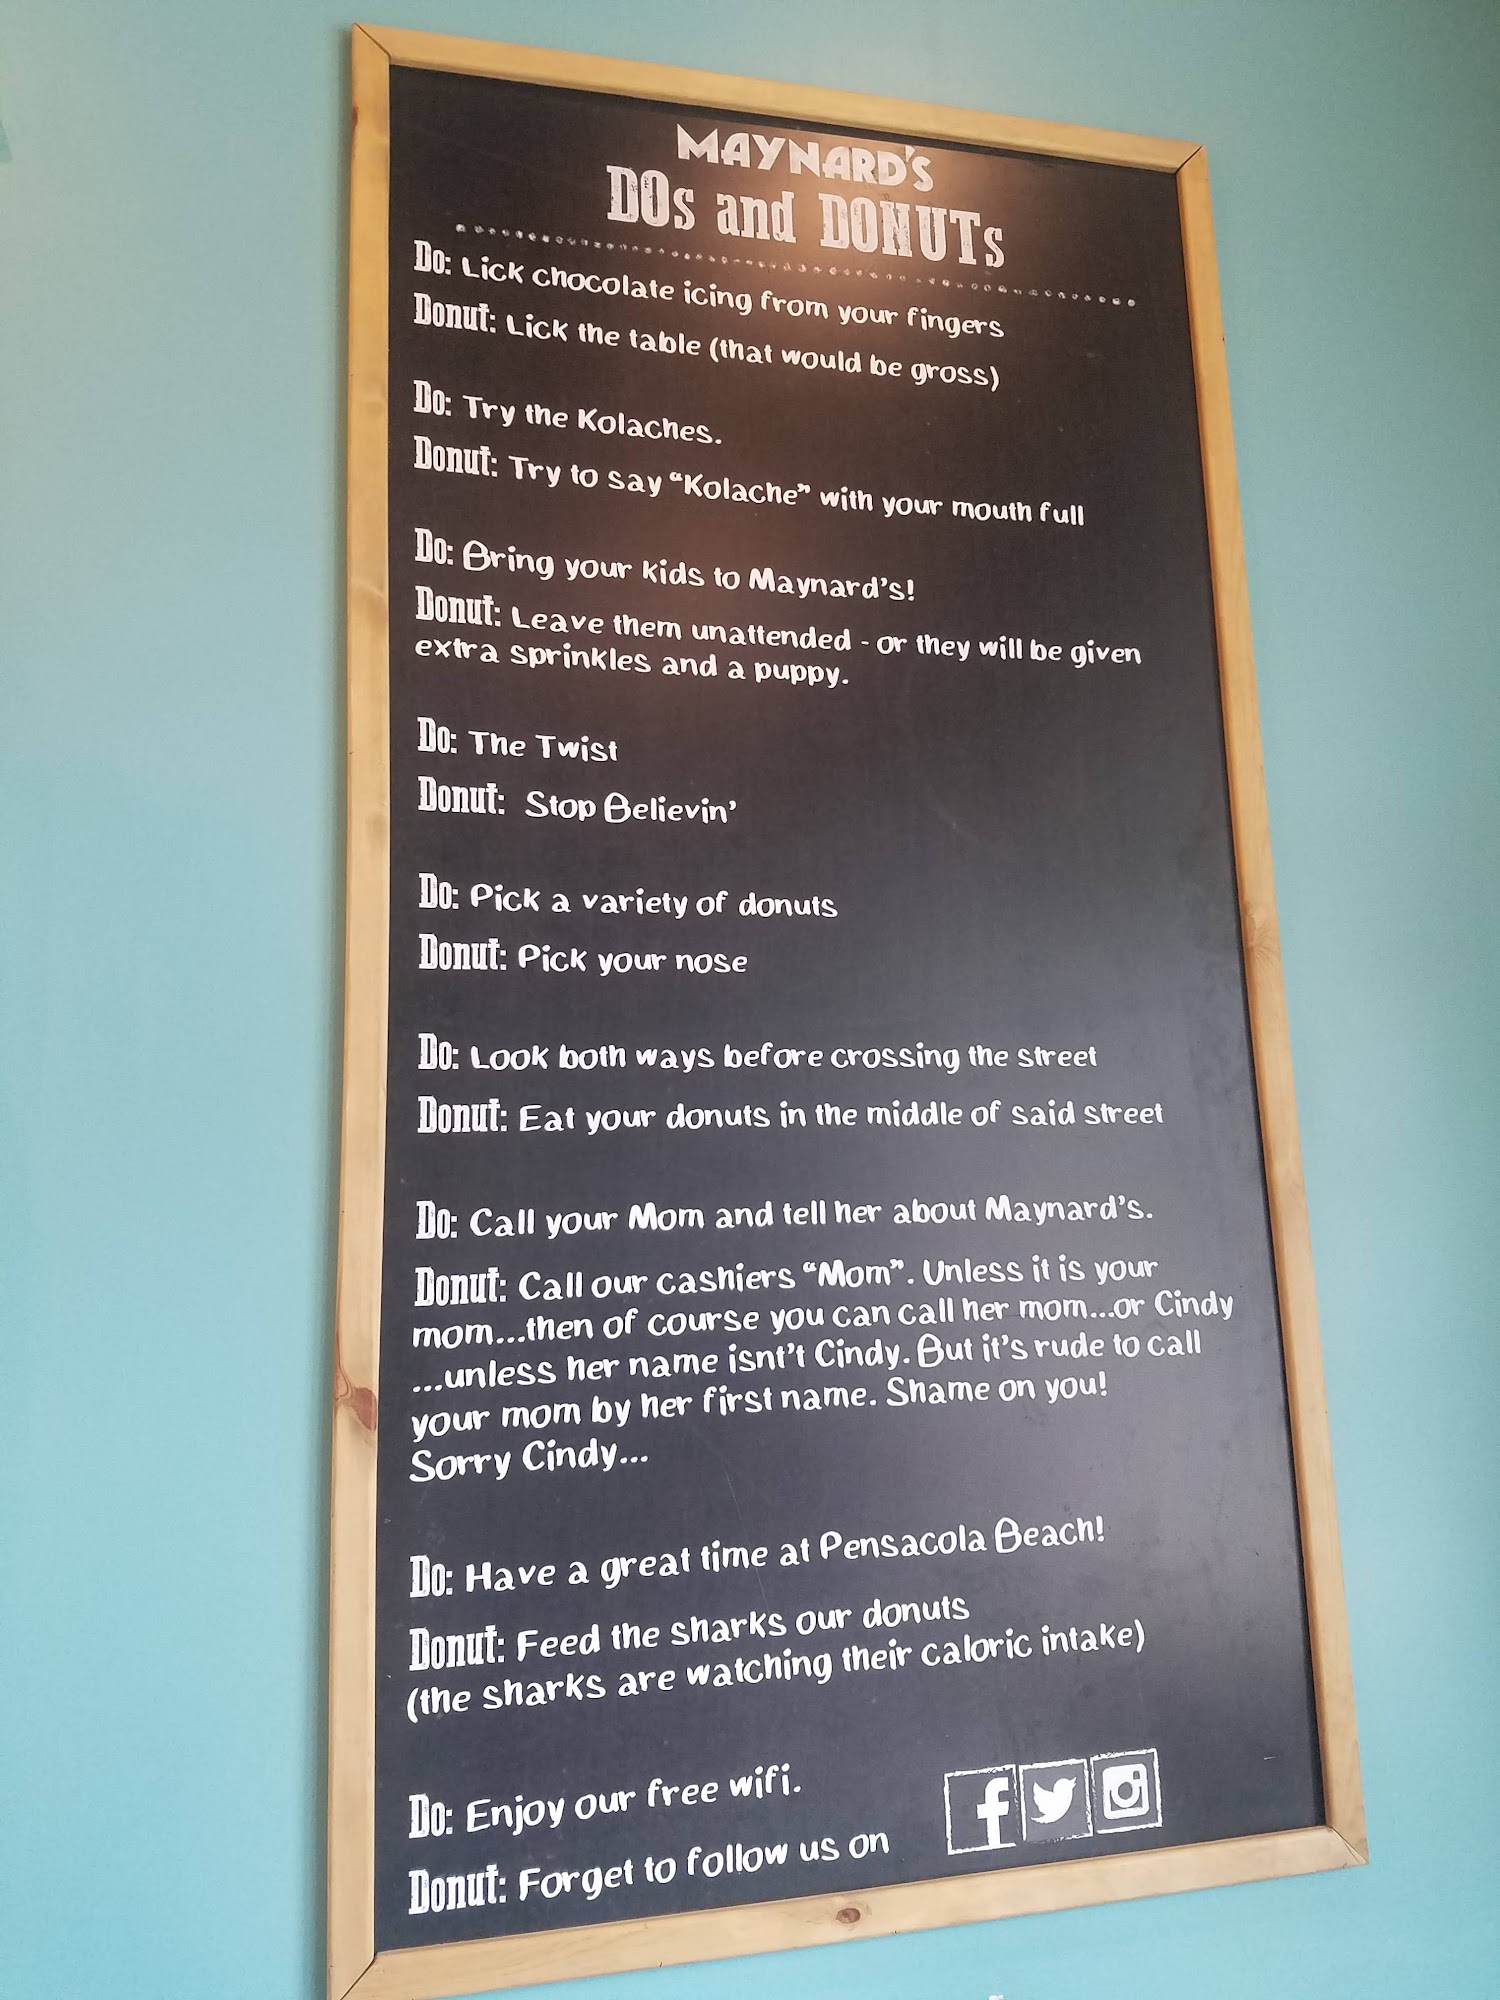 MAYNARD'S
DOs and DONUTs
Do: Lick chocolate icing from your fingers
Donut: Lick the table (that would be gross)
Do: Try the Kolaches.
Donut: Try to say “Kolache” with your mouth full
Do: Bring your kids to Maynard's!
Donut: Leave them unattended - or they will be given
extra sprinkles and a puppy.
Do: The Twist
Donut: Stop Believin'
Do: Pick a variety of donuts
Donut: Pick your nose
Do: Look both ways before crossing the street
Donut: Eat your donuts in the middle of said street
Do: Call your Mom and tell her about Maynard's.
Donut: Call our cashiers “Mom”. Unless it is your
mom...then of course you can call her mom...or Cindy
...unless her name isnt't Cindy. But it's rude to call
your mom by her first name. Shame on you!
Sorry Cindy...
Do: Have a great time at Pensacola Beach!
Donut: Feed the sharks our donuts
(the sharks are watching their caloric intake)
Do: Enjoy our free wifi.
Donut: Forget to follow us on